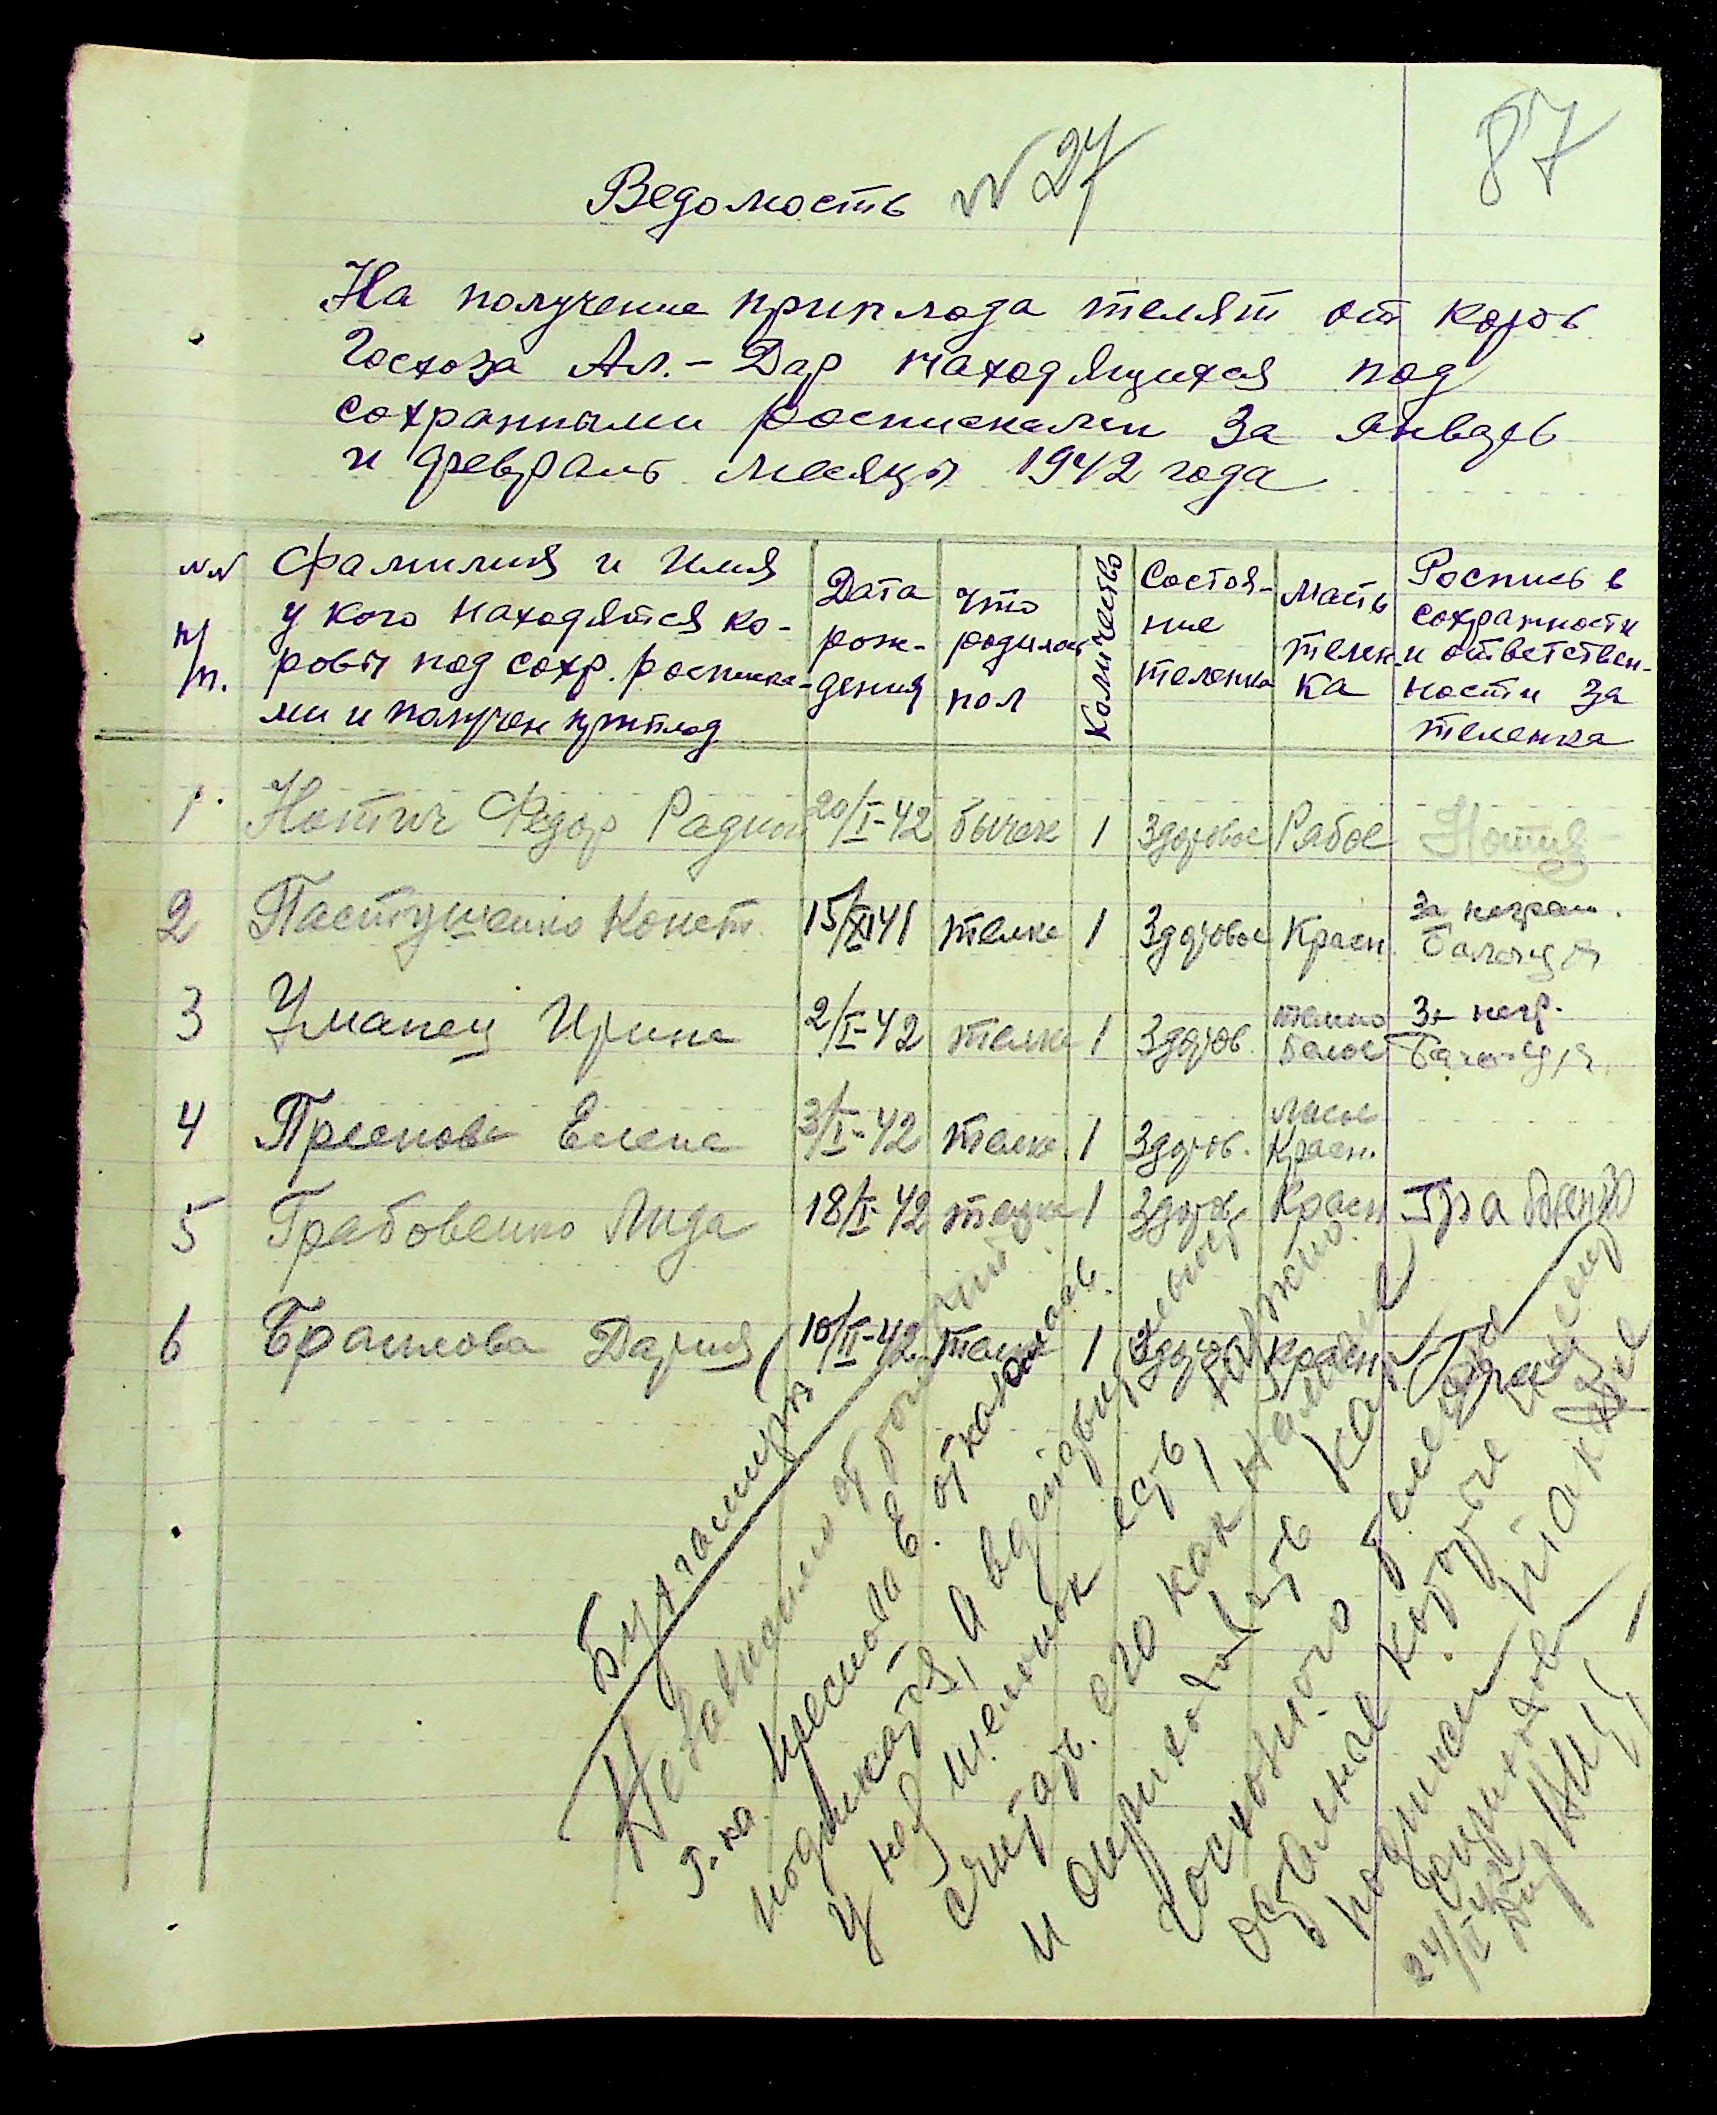 87
Ведомость №27
На получение приплода телят от коров
Госхоза Ал.-Дар находящихся под
сохранными расписками за январь
и февраль месяцы 1942 года
№№ п/п.
Фамилия и Имя
у кого находятся ко-
ровы под сохр. росписка-
ми и получен приплод
Дата
рож-
дения
что
родилось
пол
Количество
Состоя-
ние
теленка
масть
телен-
ка
Роспись в
сохранности
и ответствен-
ности за
теленка
1. Нотич Федор 20/I-42 бычек 1 Здоровое Рябое Нотич
2 Пастушенко Конст. 15/XI 41 телка 1 Здоровое Красн. За неграм.
3 Уманец Ирина 2/I-42 телка 1 Здоров. темно белое За негр.
4 Преснова Елена 3/I-42 телка 1 Здоров. Красн.
5 Грабовенко Лида 18/I-42 телка 1 Здоров Красн
6 Браилова Дария 10/II-42 телка 1 Здоров Красн
Бухгалтеру
Независимо от
г-ка Преснова Е. отказалась
подписаться, а
у неё теленок есть,
считать его как
и оприходовать как
госховного теленка
остальные которые
подписи также
оприходовать
24/II 42